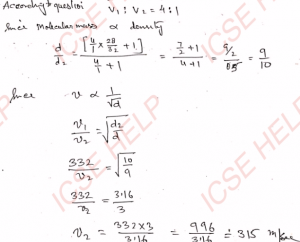 According to question V₁ : V₂ = 4 : 1
Since Molecular mass ∝ density
d/d₂ = [4/1 × 28/32 + 1] / (4/1 + 1) = (7/2 + 1)/(4 + 1) = (9/2)/5 = 9/10
Since v ∝ 1/√d
v₁/v₂ = √(d₂/d)
332/v₂ = √(10/9)
332/v₂ = 3.16/3
v₂ = (332 × 3)/3.16 = 996/3.16 ≑ 315 m/sec
ICSE HELP
ICSE HELP
ICSE HELP
ICSE HELP